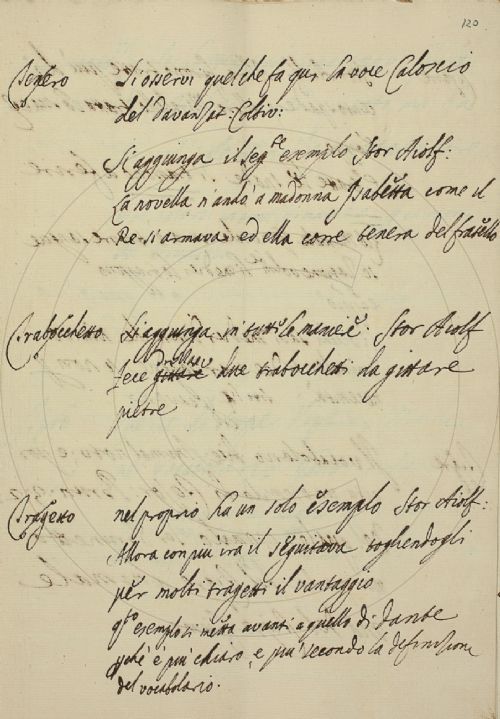 120
Tenero Si osservi quel che fa qui la voce Caloscio
del Davanzat: Coltiv:
Si aggiunga il seg.te esempio Stor Aiolf:
La novella n'andò a madonna Isabetta come il
Re si armava ed ella corre tenera del fratello
Trabocchetto Si aggiunga in tutte le maniere. Stor Aiolf
Fece drizzare due trabocchetti da gittare
pietre
Tragetto nel proprio ha un solo esempio Stor Aiolf:
Allora con più ira il seguitava togliendogli
per molti tragetti il vantaggio
q.to esempio si metta avanti a quello di Dante
perchè è più chiaro, e più secondo la definizione
del vocabolario.